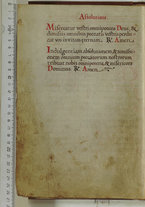 Absolutiare.
Misereatur vestri omnipotens Deus, &
dimissis omnibus peccatis vestris perdu
cat vos in vitam eternam. ℟. Amen.
Indulgentiam absolutionem & remissio
nem omnium peccatorum nostrorum
tribuat nobis omnipotens & misericors
Dominus ℟. Amen.